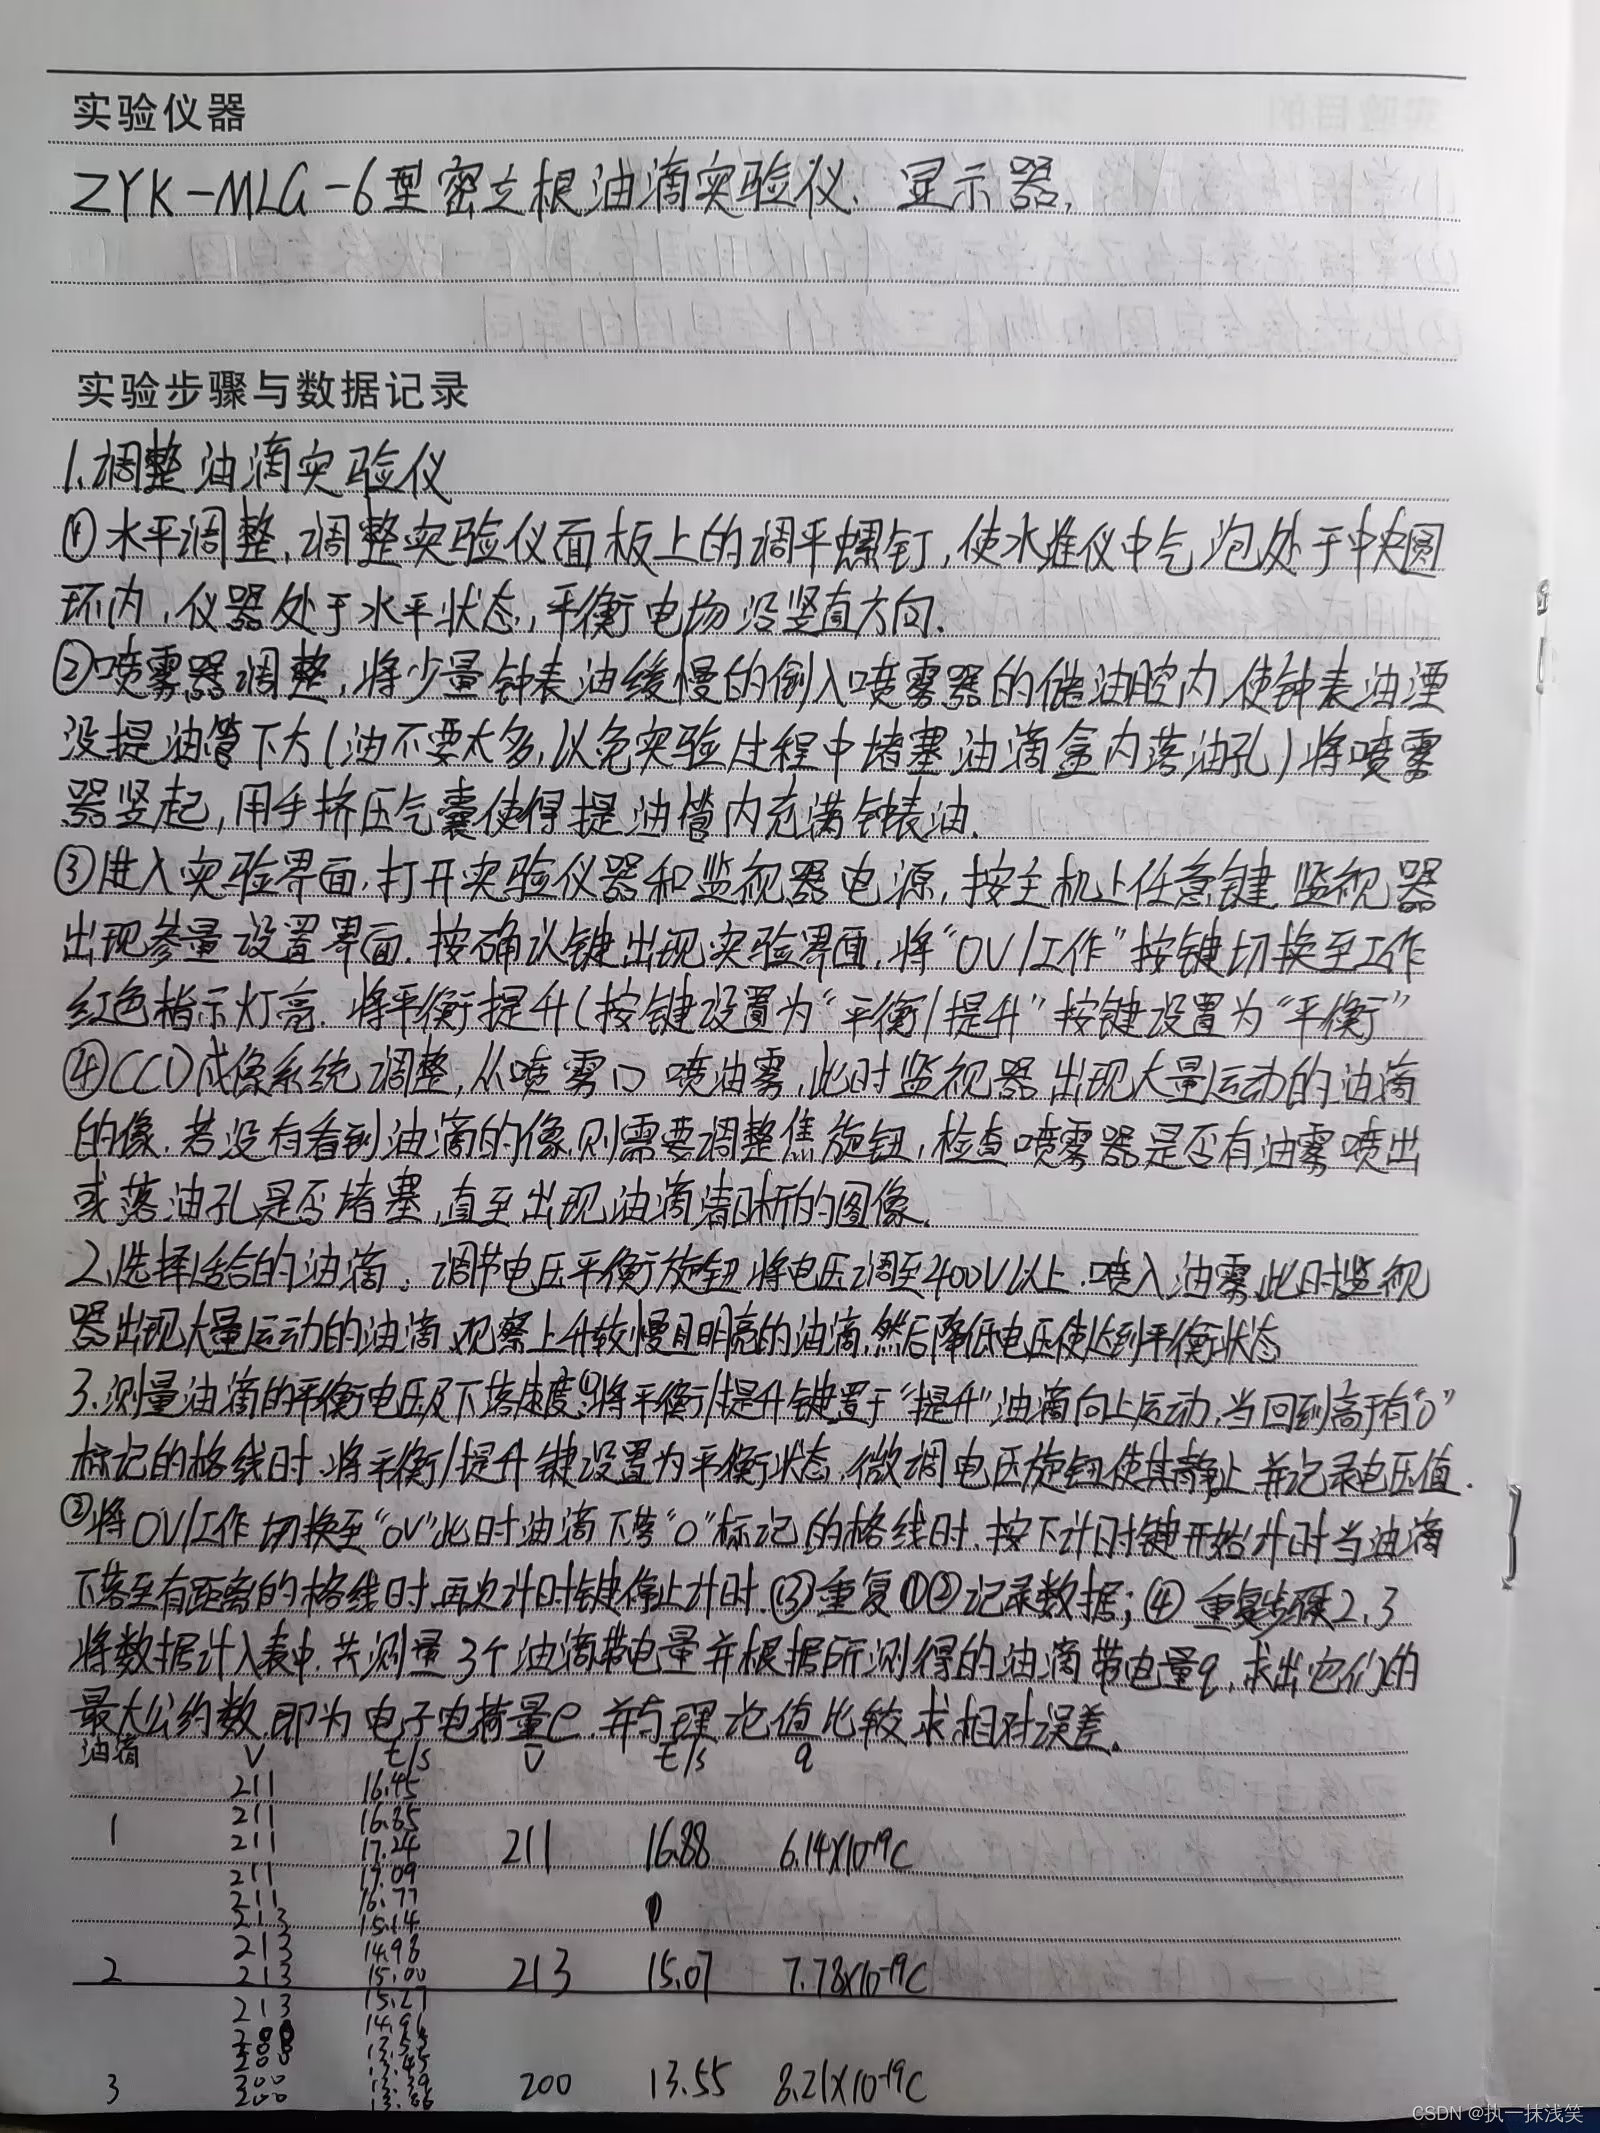 实验仪器
ZYK-MLG-6型密立根油滴实验仪、显示器,
实验步骤与数据记录
1.调整油滴实验仪
①水平调整,调整实验仪面板上的调平螺钉,使水准仪中气泡处于中央圆
环内,仪器处于水平状态,平衡电场沿竖直方向.
②喷雾器调整,将少量钟表油缓慢的倒入喷雾器的储油腔内,使钟表油湮
没提油管下方(油不要太多,以免实验过程中堵塞油滴盒内落油孔)将喷雾
器竖起,用手挤压气囊使得提油管内充满钟表油.
③进入实验界面,打开实验仪器和监视器电源,按主机上任意键,监视器
出现参量设置界面.按确认键出现实验界面,将“OV/工作”按键切换至工作
红色指示灯亮.将平衡提升(按键设置为“平衡/提升”按键设置为“平衡”
④CCD成像系统调整,从喷雾口喷油雾,此时监视器出现大量运动的油滴
的像.若没有看到油滴的像,则需要调整焦旋钮,检查喷雾器是否有油雾喷出
或落油孔是否堵塞,直至出现油滴清晰的图像.
2.选择适合的油滴.调节电压平衡旋钮将电压调至400V以上.喷入油雾,此时监视
器出现大量运动的油滴,观察上升较慢且明亮的油滴,然后降低电压使达到平衡状态
3.测量油滴的平衡电压及下落速度①将平衡/提升键置于“提升”油滴向上运动,当回到高于有“0”
标记的格线时,将平衡/提升键设置为平衡状态,微调电压旋钮使其静止,并记录电压值.
②将OV/工作切换至“0V”此时油滴下落“0”标记的格线时,按下计时键开始计时当油滴
下落至有距离的格线时,再次计时键停止计时.③重复①②记录数据;④重复步骤2,3
将数据计入表中,共测量3个油滴带电量并根据所测得的油滴带电量q,求出它们的
最大公约数,即为电子电荷量e.并与理论值比较求相对误差.
油滴 V t/s U t/s q
211 16.45
211 16.85
1 211 17.24 211 16.88 6.14×10⁻¹⁹C
211 17.09
211 16.77
213 15.14
213 14.98
2 213 15.00 213 15.07 7.78×10⁻¹⁹C
213 15.27
14.96
200 13.45
3 200 200 13.55 8.21×10⁻¹⁹C
200
CSDN @执一抹浅笑